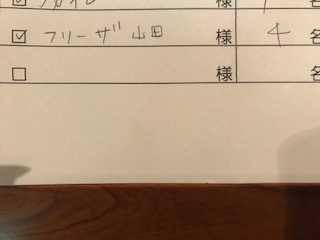 ☑ フリーザ 山田 様 4 名
☐ 様 名